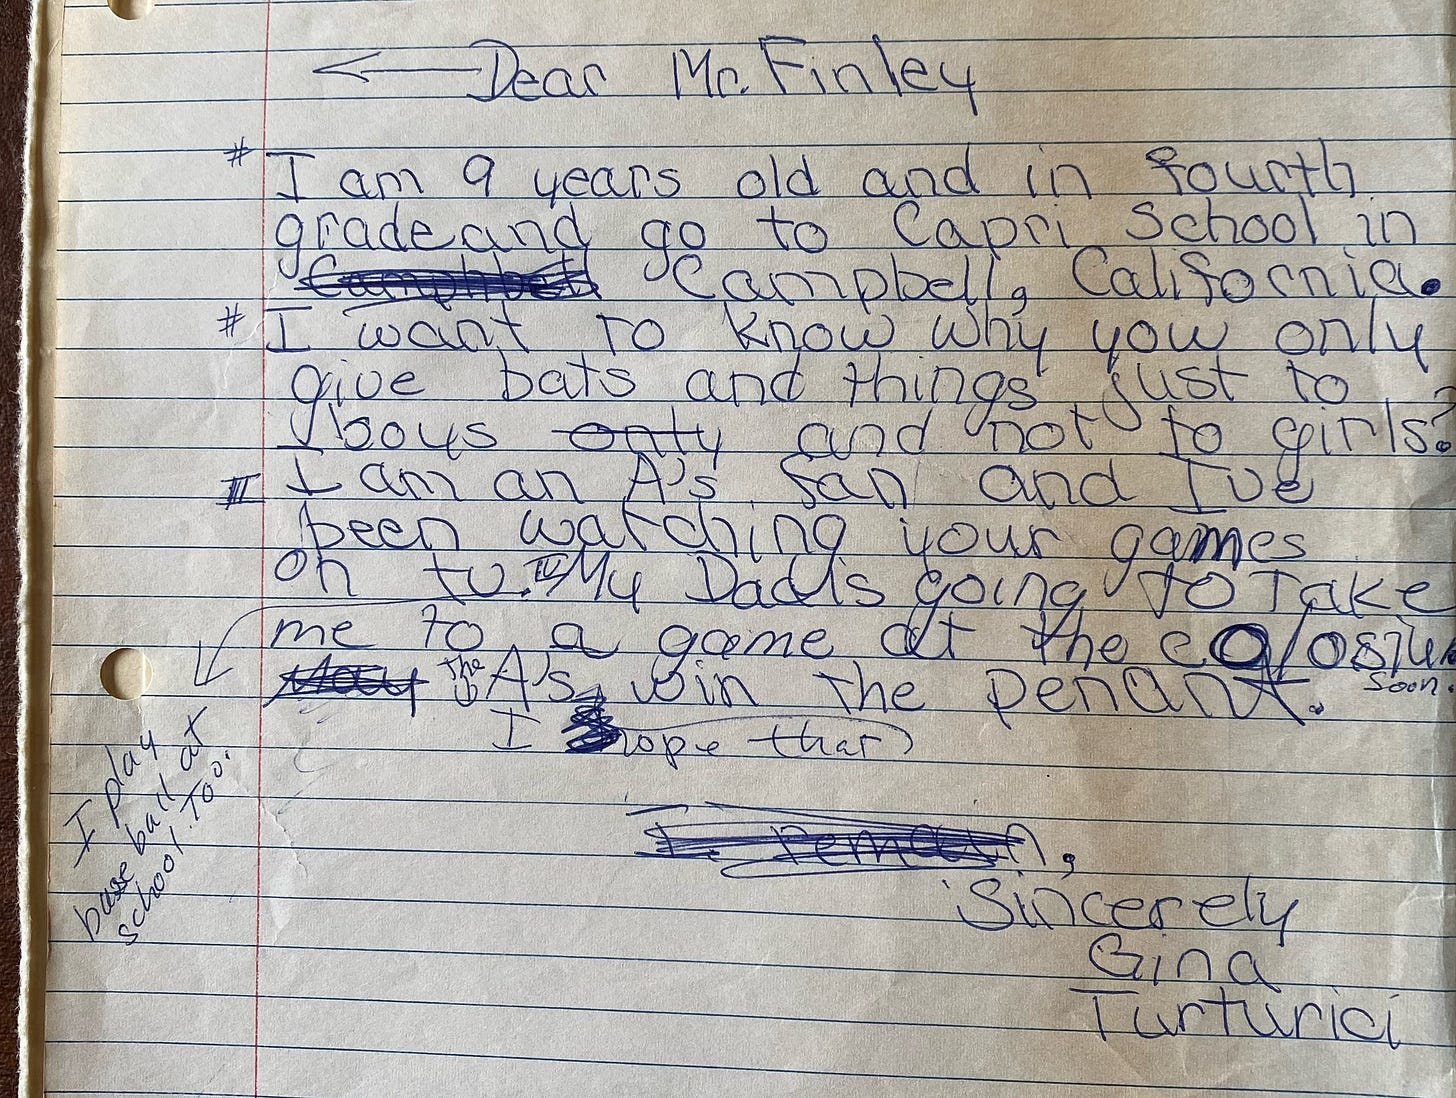 Dear Mr. Finley
# I am 9 years old and in fourth
grade and go to Capri School in
Campbell, California.
# I want to know why you only
give bats and things just to
boys only and not to girls?
III I am an A's fan and I've
been watching your games
on tv. IV My Dad is going to Take
me to a game at the colosium
soon.
May the A's win the penant.
I hope that
I play
base ball at
school. Too.
I remain,
Sincerely
Gina
Turturici